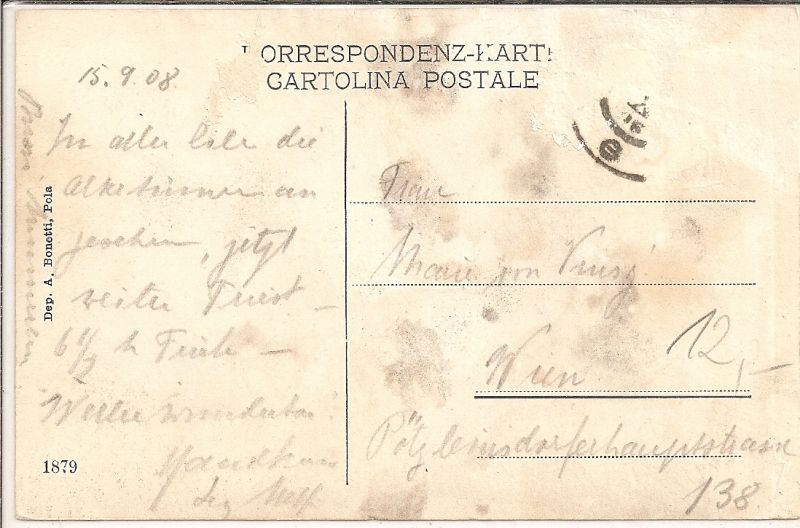 ORRESPONDENZ-KART
CARTOLINA POSTALE
15.9.08
In aller Eile die
an
gesehen, jetzt
weiter Triest –
6 1/2 h Früh –
Wetter wunderbar!
Handkuss
Dep. A. Bonetti, Pola
1879
Frau
Marie von
Wien
Pötzleinsdorferhauptstrasse
138
12,–